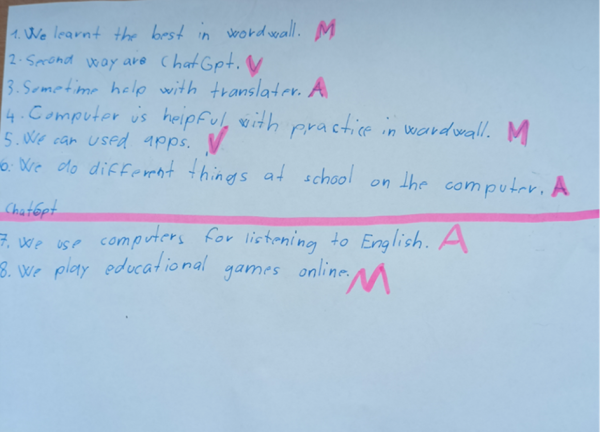 1. We learnt the best in wordwall. M
2. Second way are ChatGpt. V
3. Sometime help with translater. A
4. Computer is helpful with practice in wardwall. M
5. We can used apps. V
6. We do different things at school on the computer. A
ChatGpt
7. We use computers for listening to English. A
8. We play educational games online. M